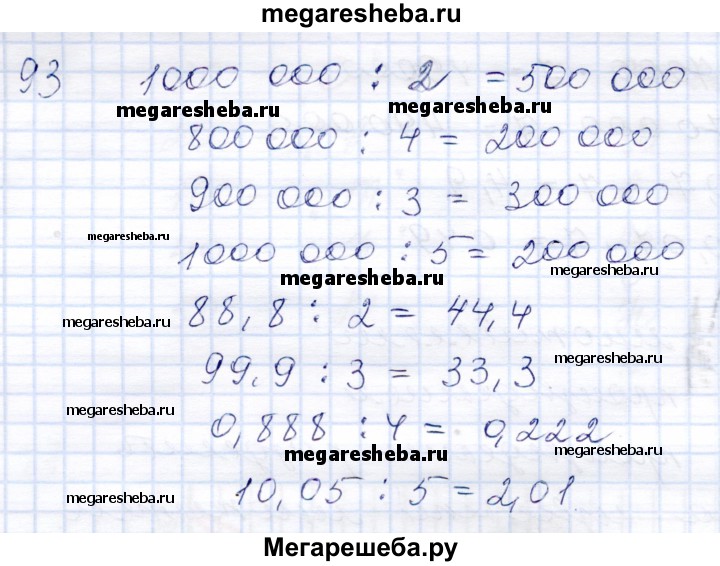 megaresheba.ru
93 1000 000 : 2 = 500 000
megaresheba.ru megaresheba.ru
800 000 : 4 = 200 000
900 000 : 3 = 300 000
megaresheba.ru
1000 000 : 5 = 200 000
megaresheba.ru megaresheba.ru
88,8 : 2 = 44,4
megaresheba.ru
99,9 : 3 = 33,3
megaresheba.ru
megaresheba.ru
0,888 : 4 = 0,222
megaresheba.ru
10,05 : 5 = 2,01
megaresheba.ru megaresheba.ru
Мегарешеба.ру